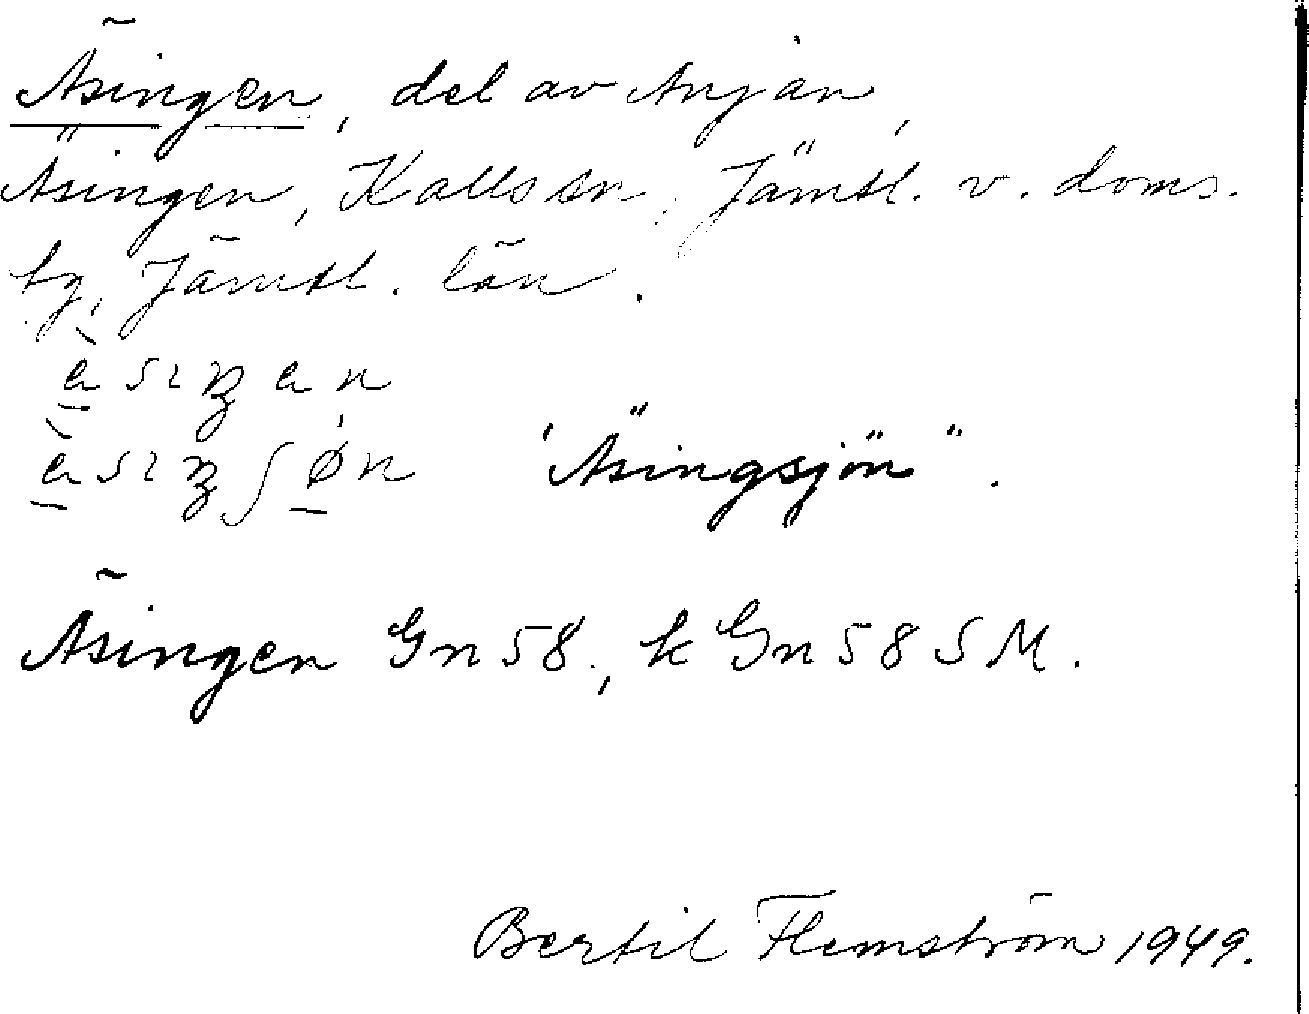 Äsingen, del av Anjan,
Äsingen, Kalls sn, Jämtl. v. doms.
Jämtl. län.
"Äsingsjön".
Äsingen Gn 58, k Gn 58 S M.
Bertil Flemström 1949.